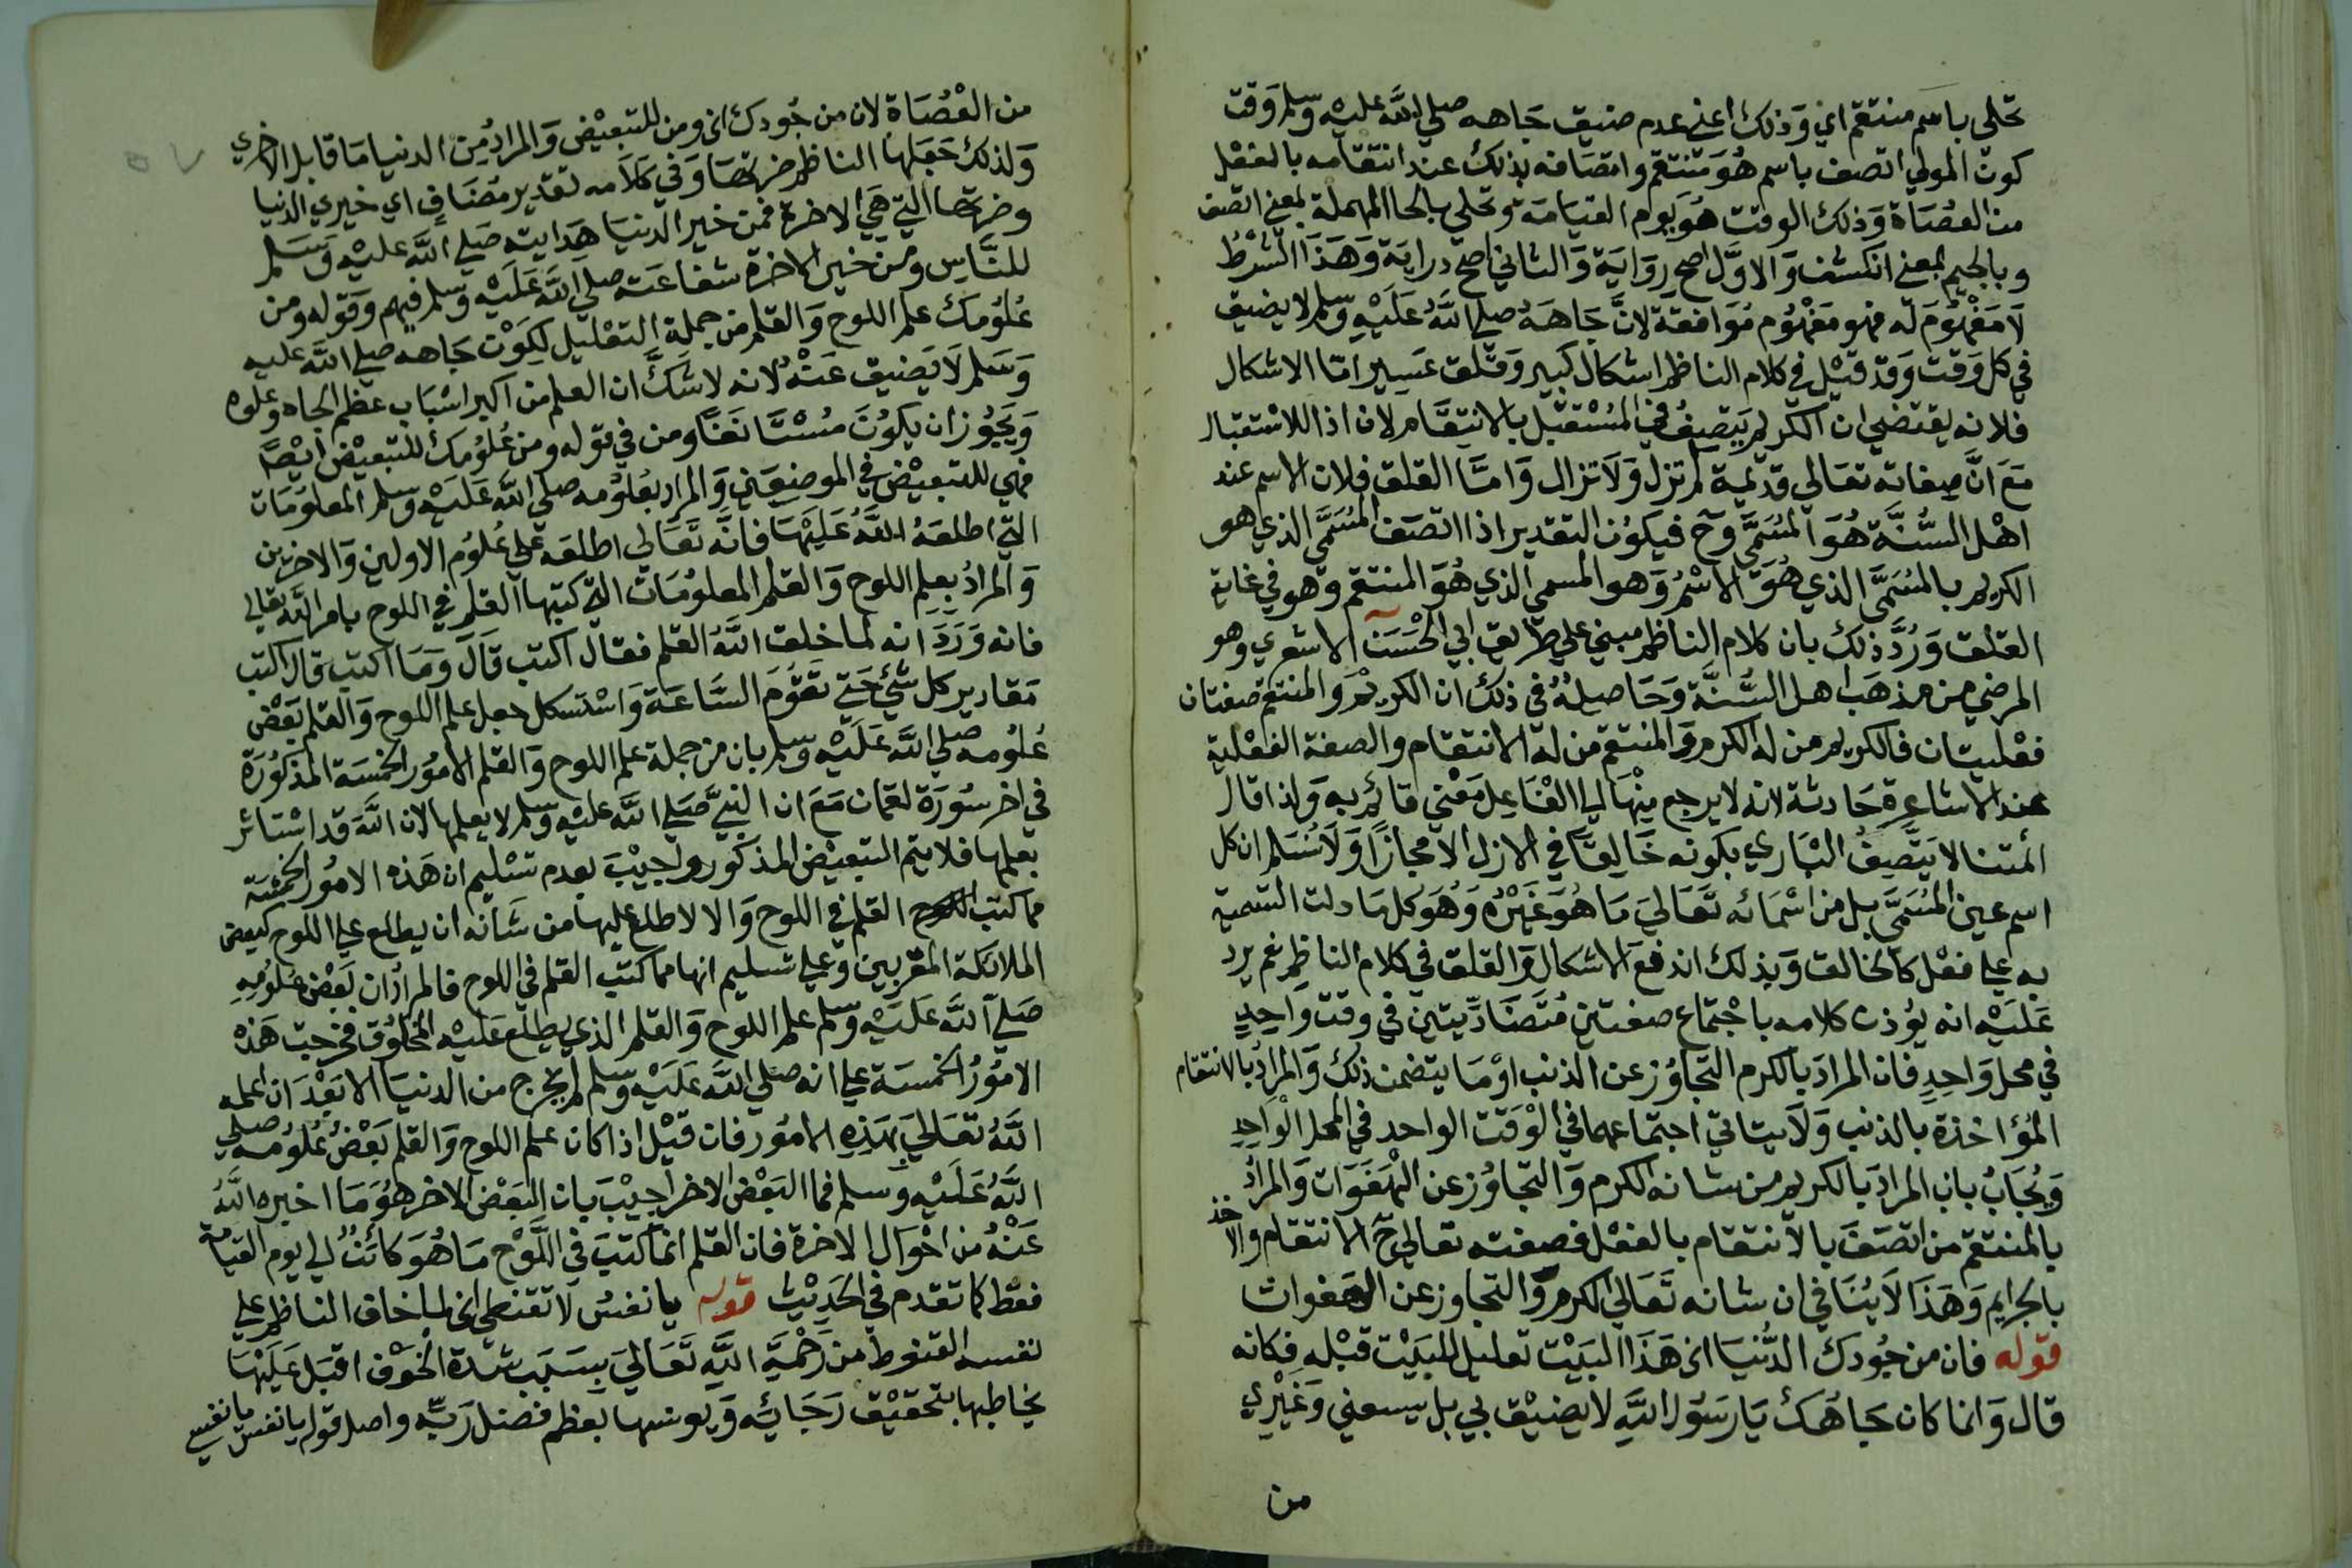 تحلي باسم منتقم اي وذلك اعني عدم ضيق جاهه صلي الله عليه وسلم وقت
كون المولي اتصف باسم هو منتقم واتصافه بذلك عند انتقامه بالفعل
من العصاة وذلك الوقت هو يوم القيامة وتحلي بالحا المهملة بمعني اتصف
وبالجيم بمعني انكشف والاول اصح رواية والثاني اصح دراية وهذا الشرط
لا مفهوم له فهو مفهوم موافقة لان جاهه صلي الله عليه وسلم لا يضيق
في كل وقت وقد قيل في كلام الناظم اشكال كبير وقلق عسير امّا الاشكال
فلانه يقتضي ان الكريم يتصف في المستقبل بالانتقام لان اذا للاستقبال
مع انّ صفاته تعالي قديمة لم تزل ولا تزال وامّا القلق فلان الاسم عند
اهل السّنّة هو المسمّي وح فيكون التقدير اذا اتصف المسمّي الذي هو
الكريم بالمسمّي الذي هو الاسم وهو المسمي الذي هو المنتقم وهو في غاية
القلق وردّ ذلك بان كلام الناظم مبني علي طريق ابي الحسن الاشعري وهو
المرضي من مذهب اهل السّنّة وحاصله في ذلك ان الكريم والمنتقم صفتان
فعليتان فالكريم من له الكرم والمنتقم من له الانتقام والصفة الفعلية
عند الاشاعرة حادثة لانه لا يرجع منها الي الفاعل معني قائم به ولذا قال
ائمتنا لا يتّصف الباري بكونه خالقا في الازل الا مجازا ولا نسلم ان كل
اسم عين المسمّي بل من اسمائه تعالي ما هو غيره وهو كل ما دلت التسمية
به علي فعل كالخالق وبذلك اندفع الاشكال والقلق في كلام الناظم نعم يرد
عليه انه يؤذن كلامه باجتماع صفتين متضادّيتين في وقت واحد
في محل واحد فان المراد بالكرم التجاوز عن الذنب او ما يتضمن ذلك والمراد بالانتقام
المؤاخذة بالذنب ولا يتاتي اجتماعهما في الوقت الواحد في المحل الواحد
ويجاب بان المراد بالكريم من شانه الكرم والتجاوز عن الهفوات والمراد
بالمنتقم من اتصف بالانتقام بالفعل فصفته تعالي ح الانتقام والاخذ
بالجرايم وهذا لا ينافي ان شانه تعالي الكرم والتجاوز عن الهفوات
قوله فان من جودك الدّنيا الخ هذا البيت تعليل للبيت قبله فكانه
قال وانما كان جاهك يا رسول الله لا يضيق بي بل يسعني وغيري
من
من العصاة لان من جودك الخ ومن للتبعيض والمراد من الدنيا ما قابل الاخري
ولذلك جعلها الناظم ضرتها وفي كلامه تقدير مضاف اي خيري الدنيا
وضرتها التي هي الاخرة فمن خير الدنيا هدايته صلي الله عليه وسلم
للنّاس ومن خير الاخرة شفاعته صلي الله عليه وسلم فيهم وقوله ومن
علومك علم اللوح والقلم من جملة التعليل لكون جاهه صلي الله عليه
وسلم لا يضيق عنه لانه لا شكّ ان العلم من اكبر اسباب عظم الجاه وعلوه
ويجوز ان يكون مستانفا ومن في قوله ومن علومك للتبعيض ايضًا
فهي للتبعيض في الموضعين والمراد بعلومه صلي الله عليه وسلم المعلومات
التي اطلعه الله عليها فانّه تعالي اطلعه علي علوم الاولين والاخرين
والمراد بعلم اللوح والقلم المعلومات التي كتبها القلم في اللوح بامر الله تعالي
فانه ورد انه لما خلق الله القلم فقال اكتب قال وما اكتب قال اكتب
مقادير كل شئ حتي تقوم الساعة واستشكل جعل علم اللوح والقلم بعض
علومه صلي الله عليه وسلم بان من جملة علم اللوح والقلم الامور الخمسة المذكورة
في اخر سورة لقمان مع ان النبيّ صلي الله عليه وسلم لا يعلمها لان الله قد استاثر
بعلمها فلا يتم التبعيض المذكور واجيب بعدم تسليم ان هذه الامور الخمسة
مما كتب القلم في اللوح والا لاطلع عليها من شانه ان يطلع علي اللوح كبعض
الملائكة المقربين وعلي تسليم انها مما كتب القلم في اللوح فالمراد ان بعض علومه
صلي الله عليه وسلم علم اللوح والقلم الذي يطلع عليه المخلوق فخرجت هذه
الامور الخمسة علي انه صلي الله عليه وسلم لم يخرج من الدنيا الا بعد ان اعلمه
الله تعالي بهذه الامور فان قيل اذا كان علم اللوح والقلم بعض علومه صلي
الله عليه وسلم فما البعض الاخر اجيب بان البعض الاخر هو ما اخبره الله
عنه من احوال الاخرة فان القلم انما كتب في اللّوح ما هو كائن الي يوم القيامة
فقط كما تقدم في الحديث قوله يا نفس لا تقنطي الخ لما خاف الناظم علي
نفسه القنوط من رحمة الله تعالي بسبب شدة الخوف اقبل عليها
يخاطبها بتحقيق رجائه ويونسها بعظم فضل ربّه واصل قوله يا نفس يا نفسي